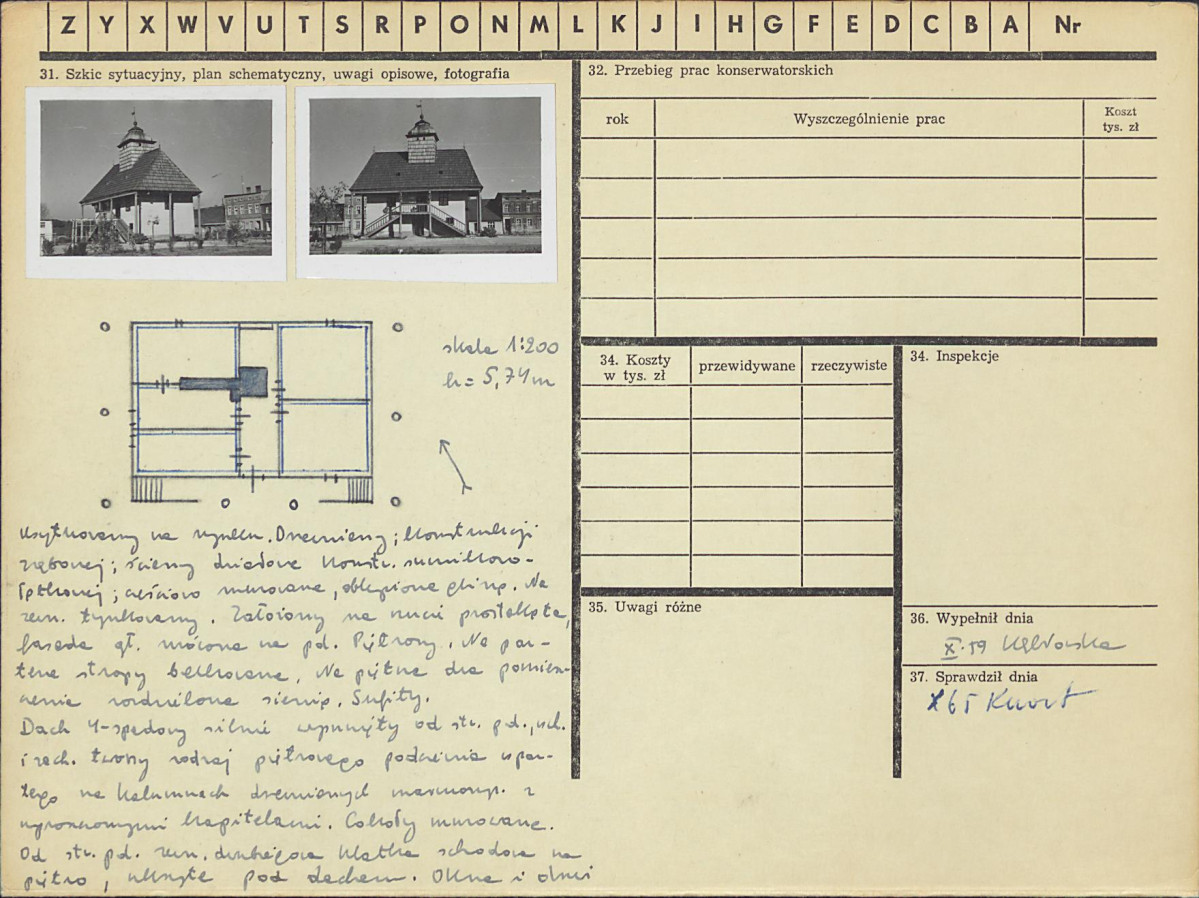 Z Y X W V U T S R P O N M L K J I H G F E D C B A Nr
31. Szkic sytuacyjny, plan schematyczny, uwagi opisowe, fotografia
skala 1:200
h = 5,74 m
Usytuowany na rynku. Drewniany; konstrukcji
zrębowej; ściany działowe konstr. sumikowo-
łątkowej; częściowo murowane, oblepione gliną. Na
zewn. tynkowany. Założony na rzucie prostokąta,
fasada gł. zwrócona na pd. Piętrowy. Na par-
terze stropy belkowane, Na piętrze dwa pomiesz-
czenia rozdzielone sienią. Sufity.
Dach 4-spadowy silnie wysunięty od str. pd., wsch.
i zach. tworzy rodzaj piętrowego podcienia wspar-
tego na kolumnach drewnianych z
kapitelami. Cokoły murowane.
Od str. pd. zewn. dwubiegowa klatka schodowa na
piętro, ukryta pod dachem. Okna i drzwi
32. Przebieg prac konserwatorskich
rok
Wyszczególnienie prac
Koszt
tys. zł
34. Koszty
w tys. zł
przewidywane
rzeczywiste
34. Inspekcje
35. Uwagi różne
36. Wypełnił dnia
X.59
37. Sprawdził dnia
X 65